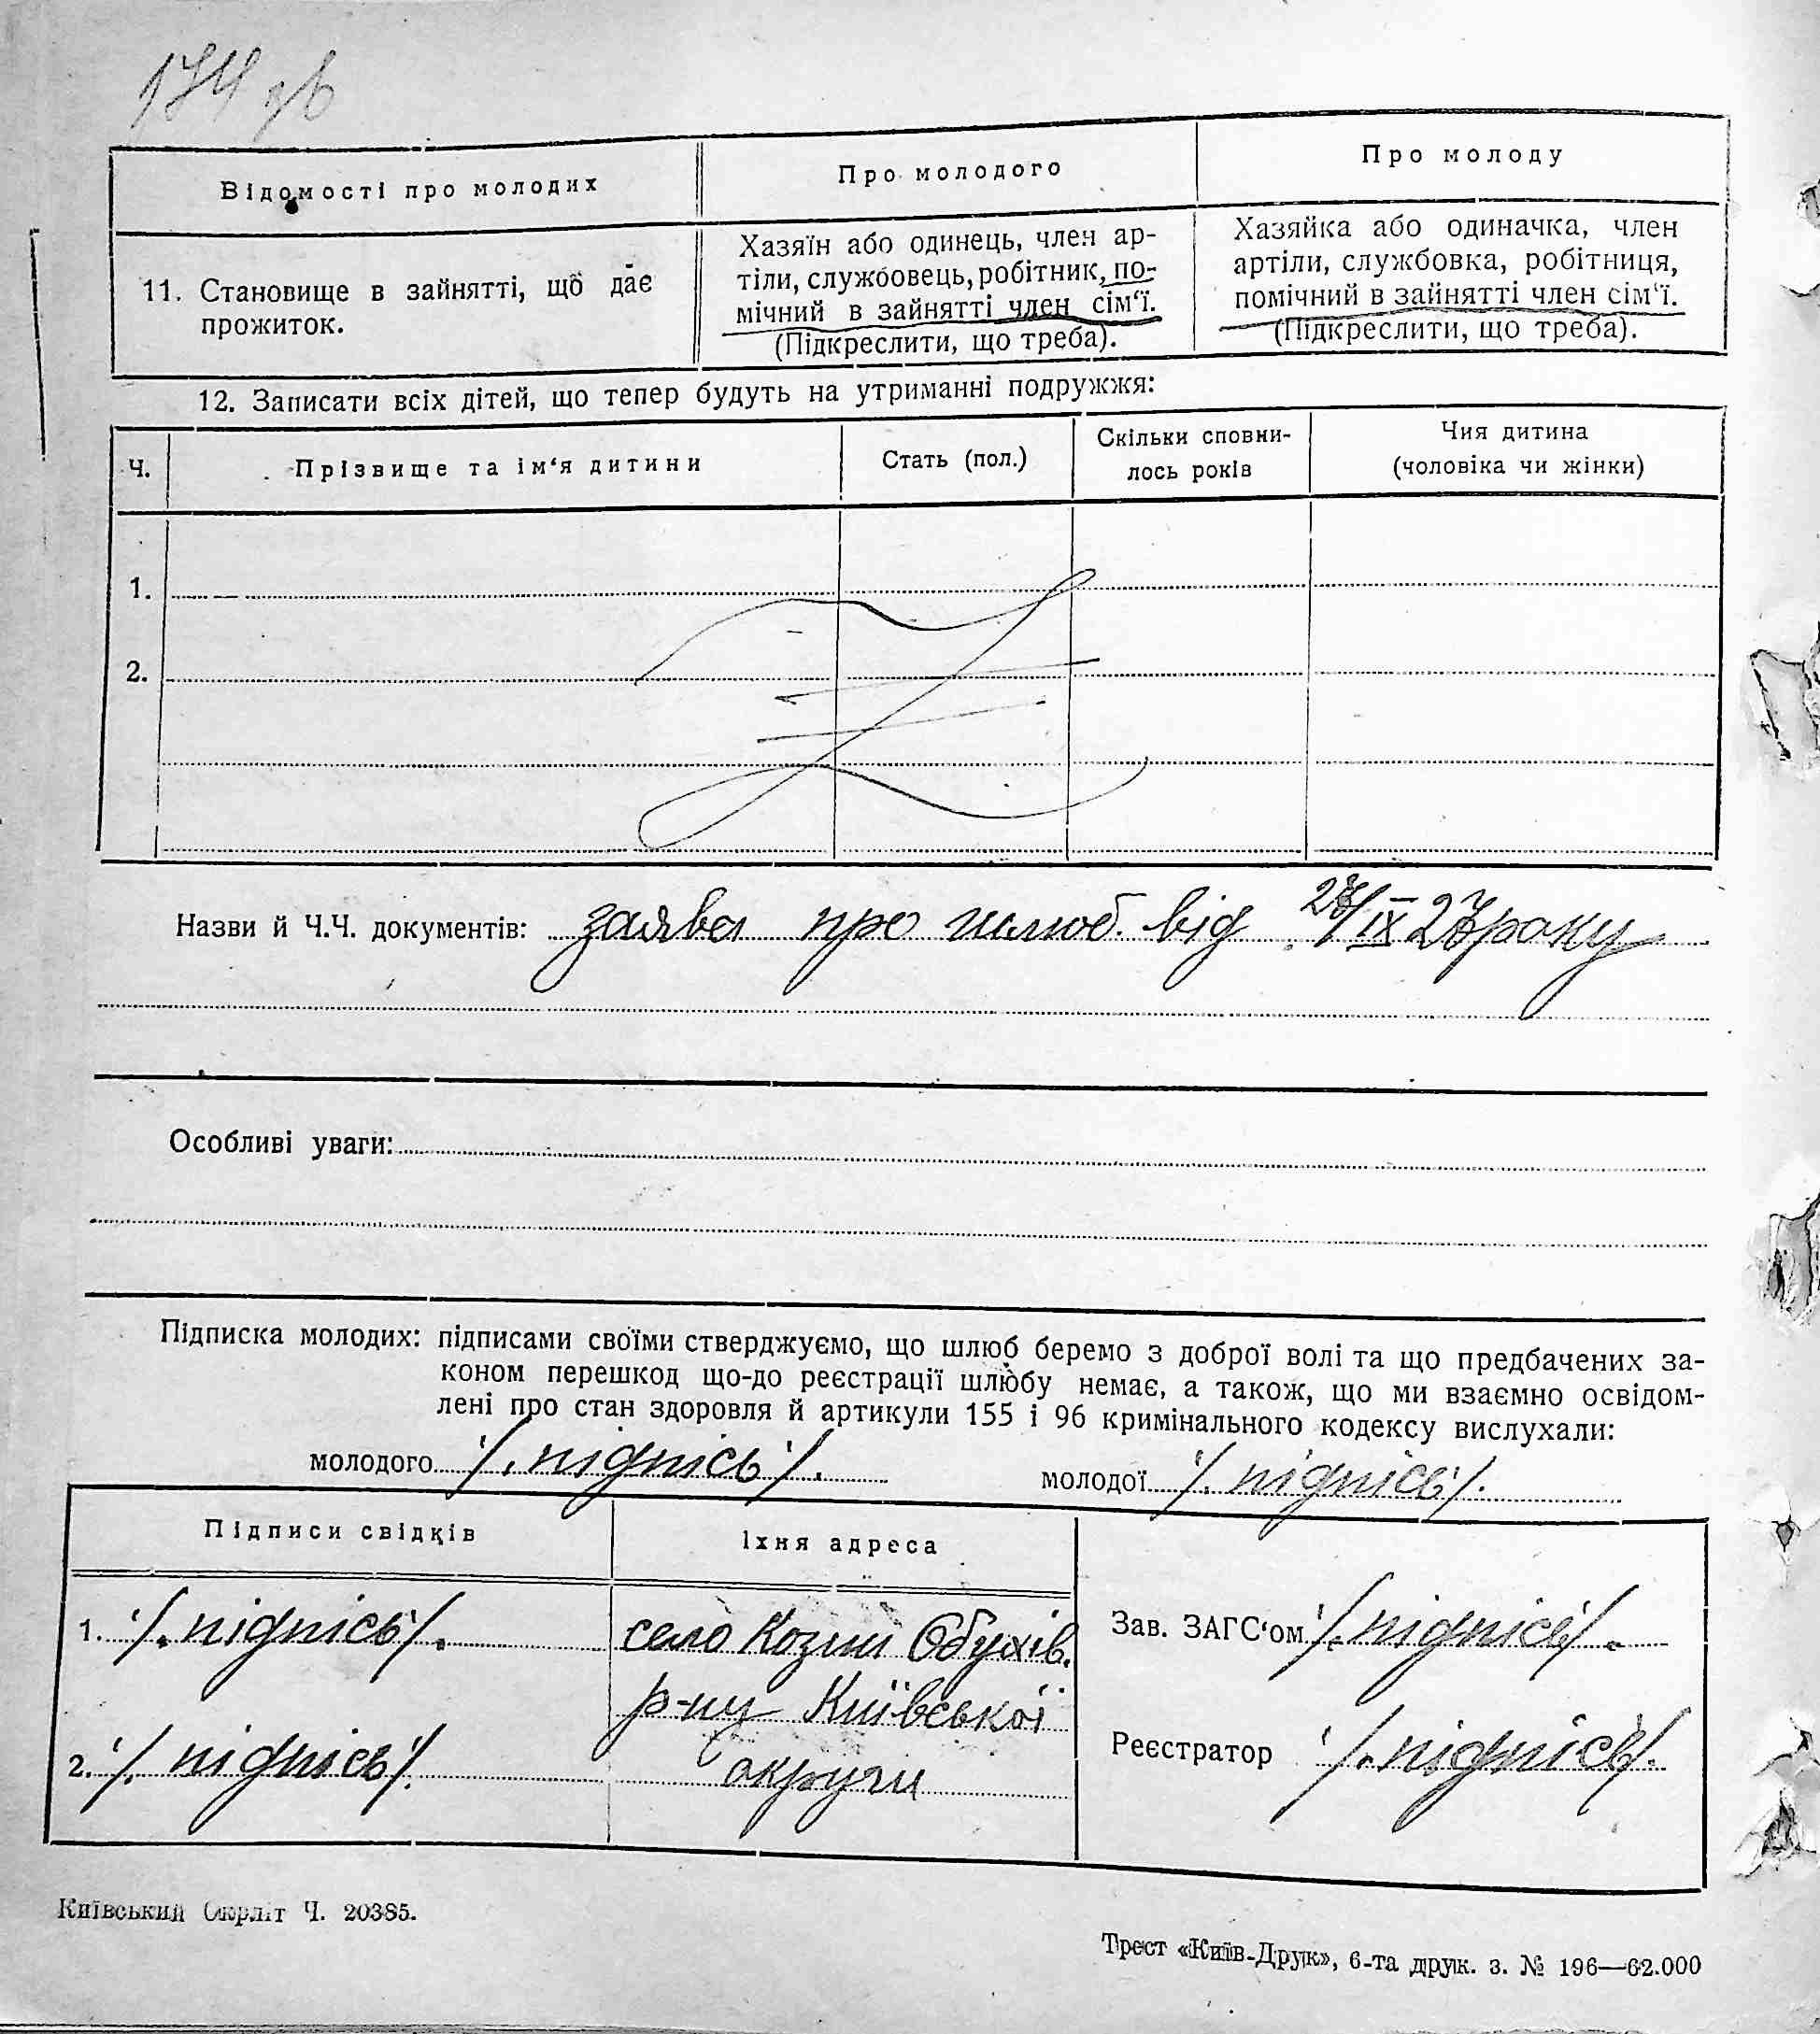 174 зв
Відомості про молодих
Про молодого
Про молоду
11. Становище в зайнятті, що дає
прожиток.
Хазяїн або одинець, член ар-
тіли, службовець, робітник, по-
мічний в зайнятті член сім'ї.
(Підкреслити, що треба).
Хазяйка або одиначка, член
артіли, службовка, робітниця,
помічний в зайнятті член сім'ї.
(Підкреслити, що треба).
12. Записати всіх дітей, що тепер будуть на утриманні подружжя:
Ч.
Прізвище та ім'я дитини
Стать (пол.)
Скільки сповни-
лось років
Чия дитина
(чоловіка чи жінки)
1.
2.
Назви й Ч.Ч. документів: заява про шлюб від /IX 27 року
Особливі уваги:
Підписка молодих: підписами своїми стверджуємо, що шлюб беремо з доброї волі та що предбачених за-
коном перешкод що-до реєстрації шлюбу немає, а також, що ми взаємно освідом-
лені про стан здоровля й артикули 155 і 96 кримінального кодексу вислухали:
молодого /. підпісь /.
молодої /. підпісь /.
Підписи свідків
Їхня адреса
1. /. підпісь /.
2. /. підпісь /.
село Козин Обухів.
р-ну Київської
округи
Зав. ЗАГС'ом /. підпісь /.
Реєстратор /. підпісь /.
Київський Окрліт Ч. 20385.
Трест «Київ-Друк», 6-та друк. з. № 196—62.000